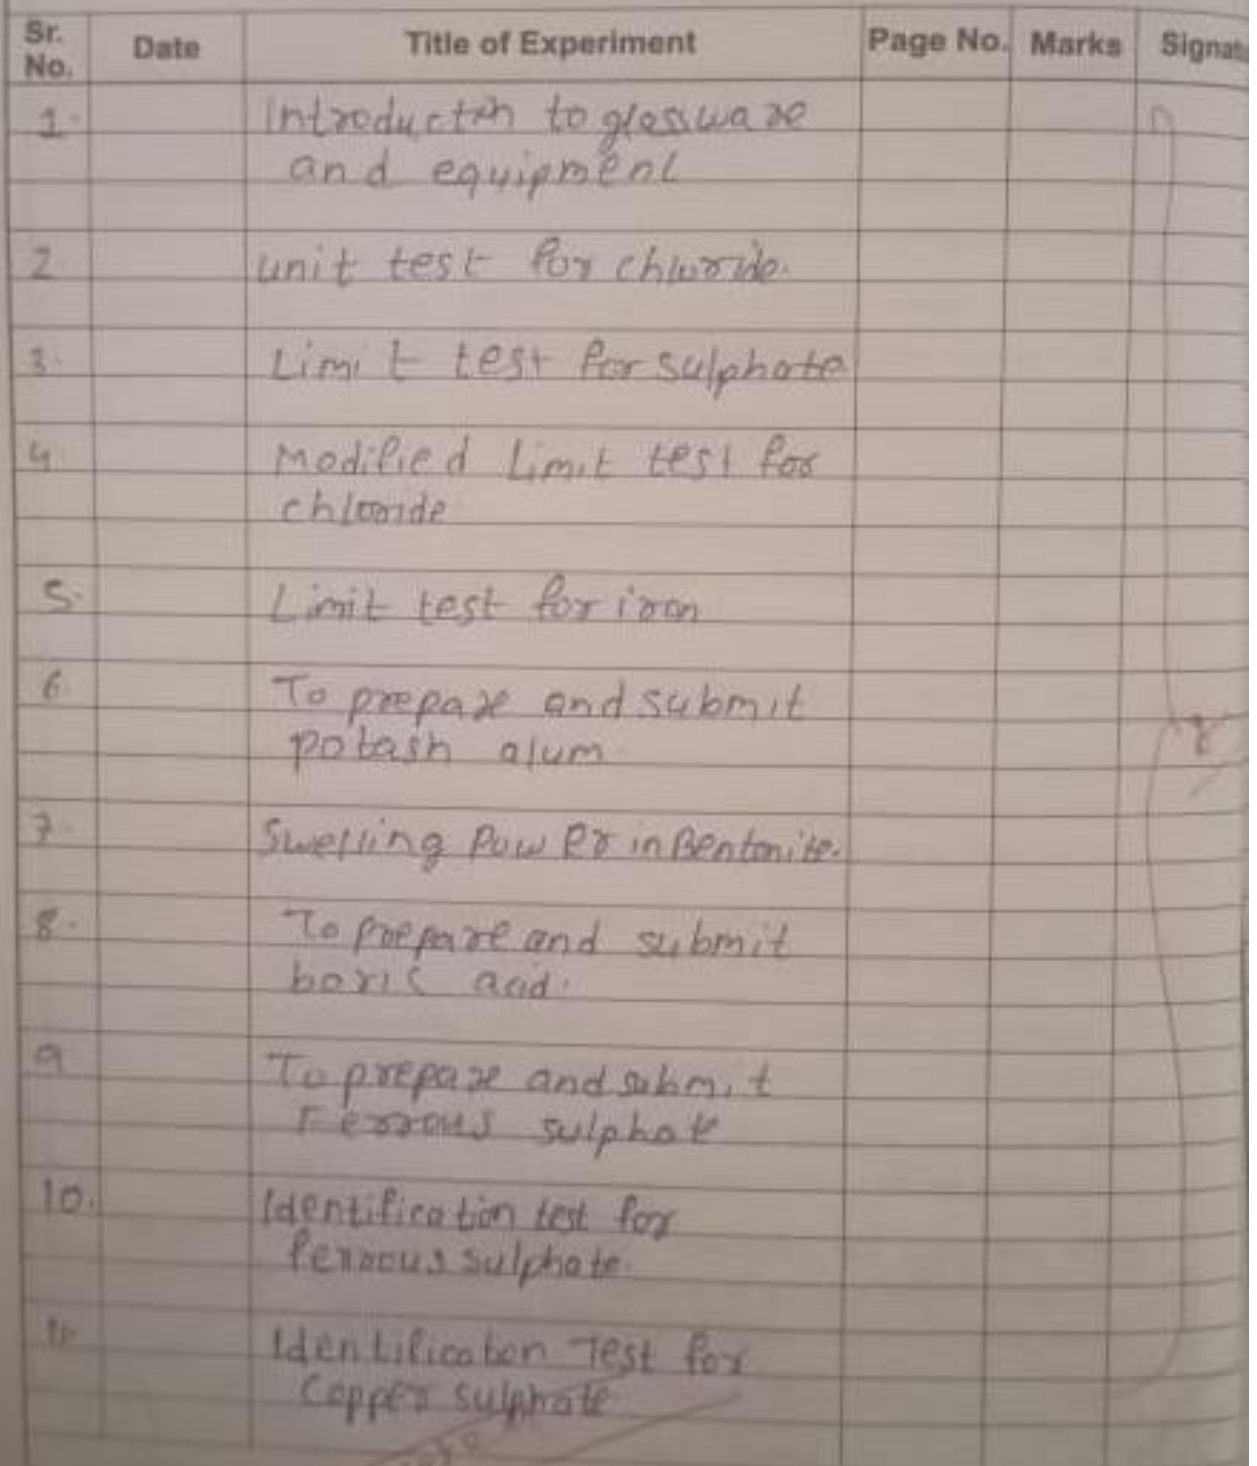 Sr. No. Date Title of Experiment Page No. Marks Signatu
1. Introduction to glassware
and equipment
2 unit test for chloride.
3. Limit test for sulphate
4 Modified Limit test for
chloride
5. Limit test for iron
6. To prepare and submit
potash alum
7. Swelling Power in Bentonite.
8. To prepare and submit
boric acid.
9 To prepare and submit
Ferrous sulphate
10. Identification test for
ferrous sulphate.
11. Identification Test for
Copper sulphate